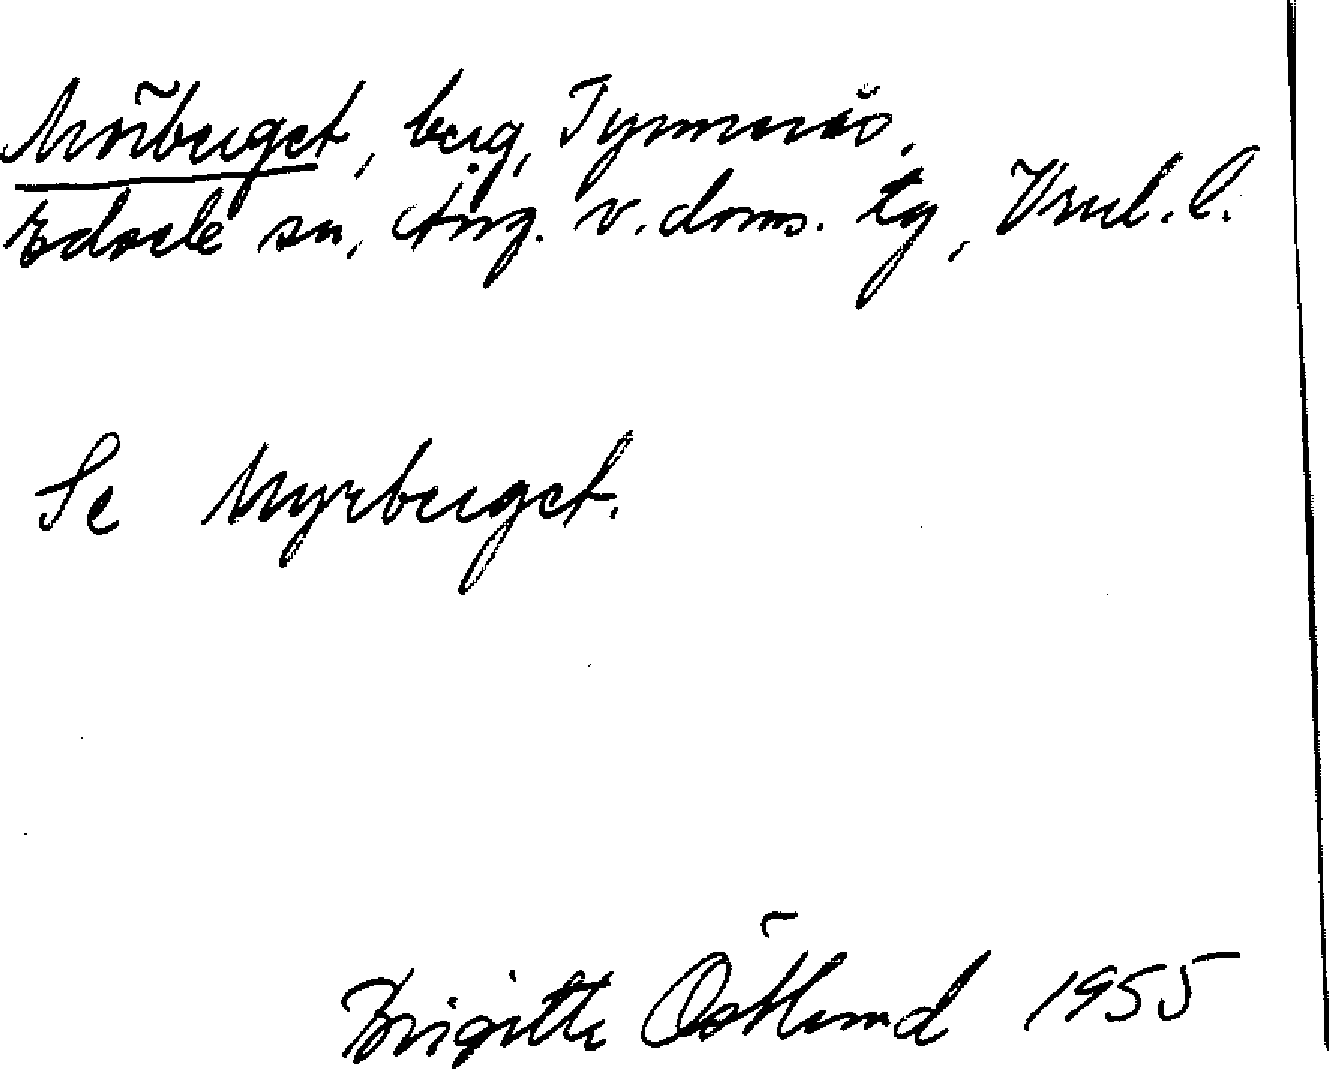 Mörberget, berg, Tynnerås,
Edsele sn, Ång. v. doms. tg, Vnrl. l.
Se Myrberget.
Brigitte Östlund 1955